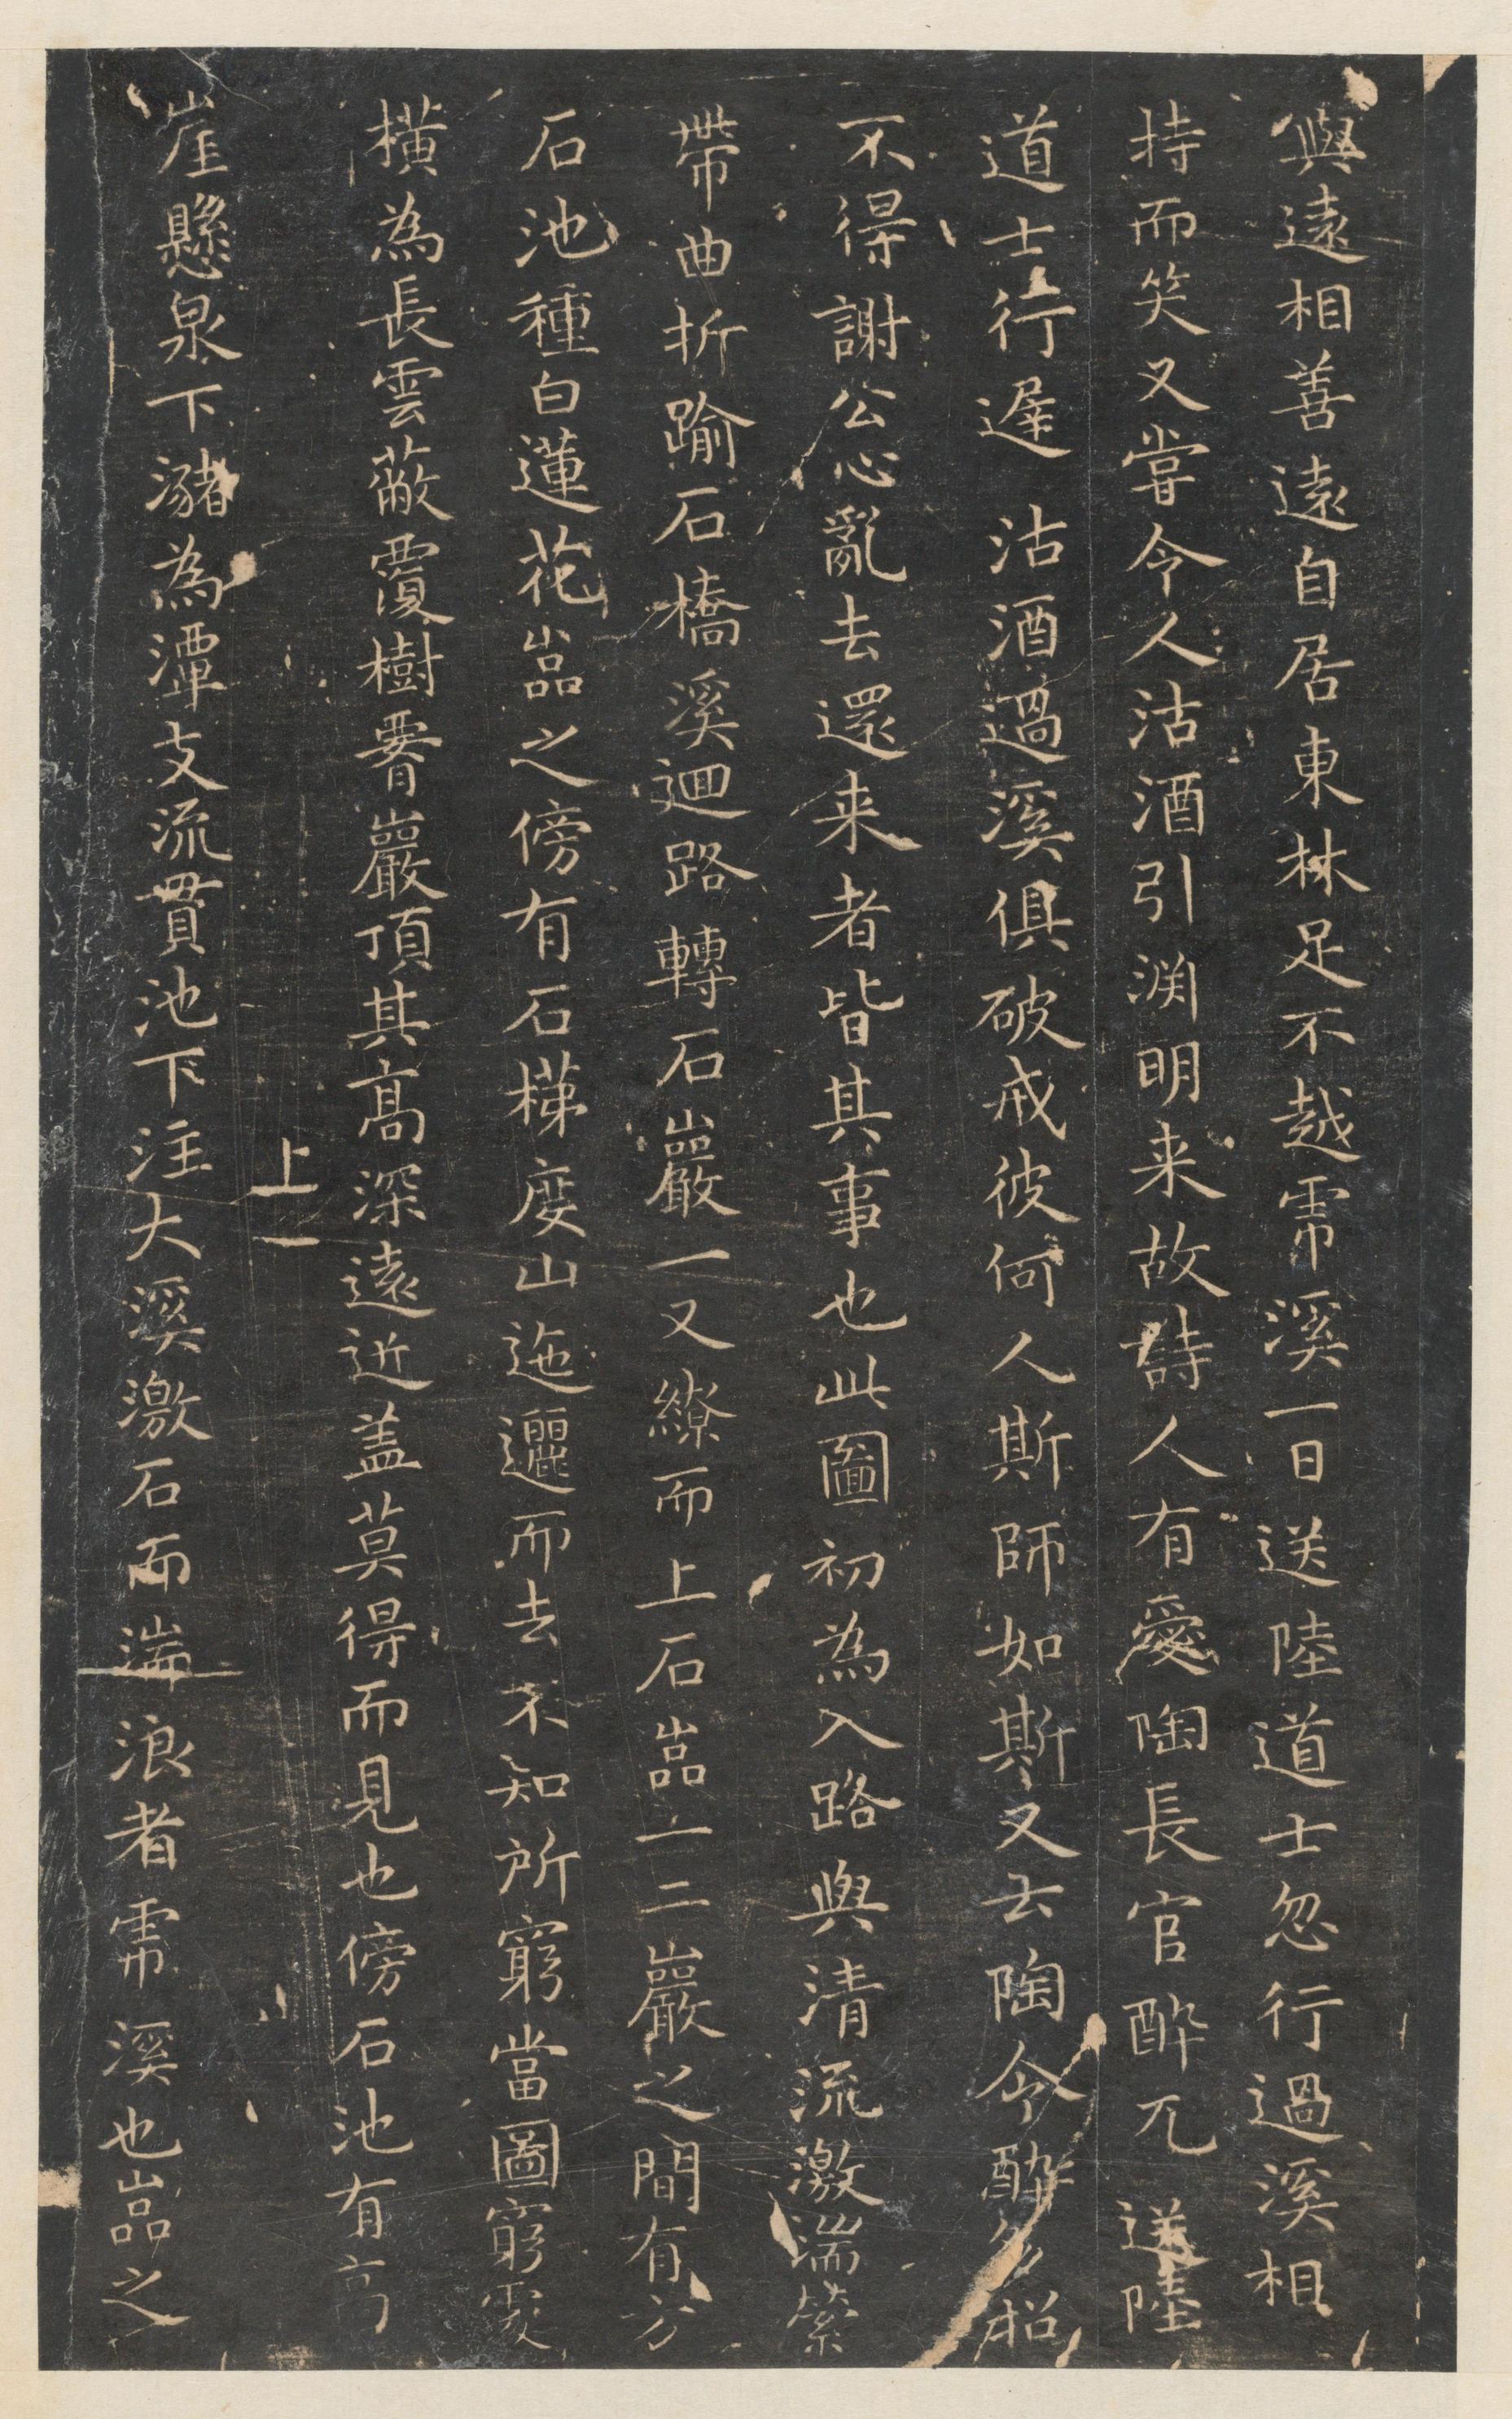 與遠相善遠自居東林足不越虎溪一日送陸道士忽行過溪相
持而笑又嘗令人沽酒引渊明来故詩人有愛陶長官醉兀 送陸
道士行遲 沽酒過溪俱破戒彼何人斯師如斯又云陶令醉多招
不得謝公心亂去還来者皆其事也此圖初為入路與清流激湍縈
帶曲折踰石橋溪迴路轉石巖一又繚而上石嵓一二巖之間有方
石池種白蓮花嵓之傍有石梯度山迤邐而去不知所窮當圖窮處
橫為長雲蔽覆樹署巖頂其髙深遠近盖莫得而見也傍石池有髙
上一
崖懸泉下瀦為潭支流貫池下注大溪激石而湍浪者虎溪也嵓之